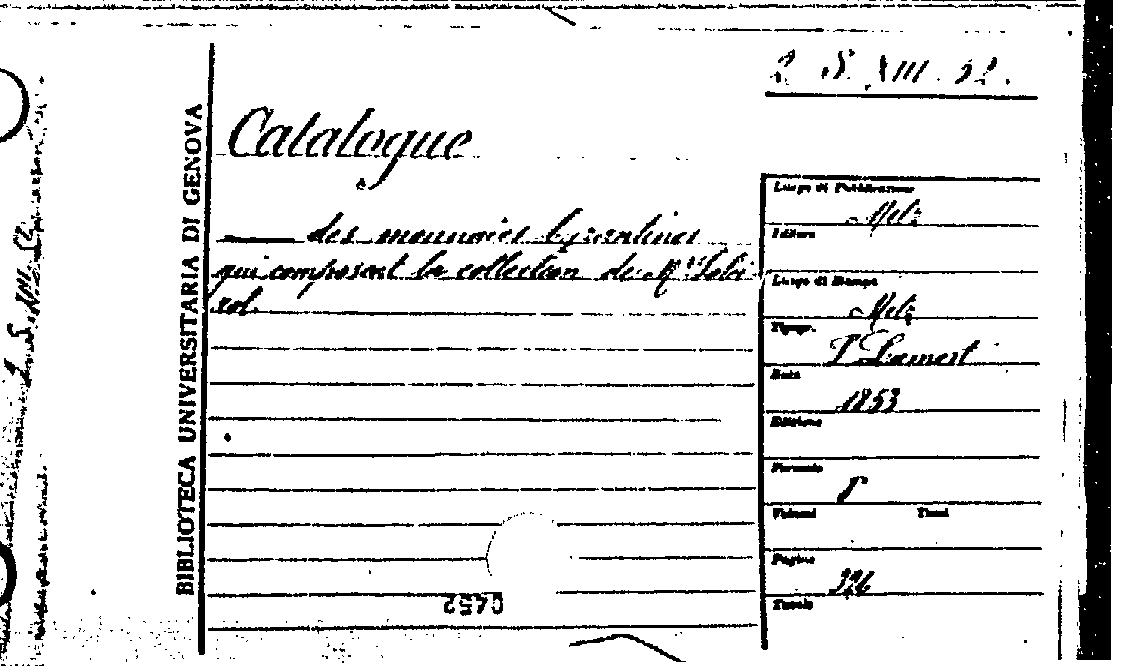 2 S. XIII. 52.
BIBLIOTECA UNIVERSITARIA DI GENOVA
Catalogue
des monnaies byzantines
qui composent la collection de Mr Soleirol.
Luogo di Pubblicazione
Metz
Editore
Luogo di Stampa
Metz
Tipogr.
Data
1853
Edizione
Formato
8°
Volumi Tomi
Pagine
326
Tavole
0452